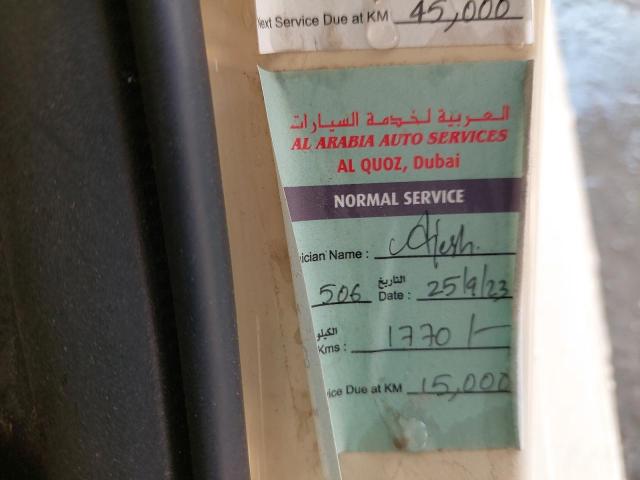 ext Service Due at KM 45,000
العربية لخدمة السيارات
AL ARABIA AUTO SERVICES
AL QUOZ, Dubai
NORMAL SERVICE
ician Name :
التاريخ
506 Date : 25/9/23
الكيلو
Kms : 1770/-
ice Due at KM 15,000